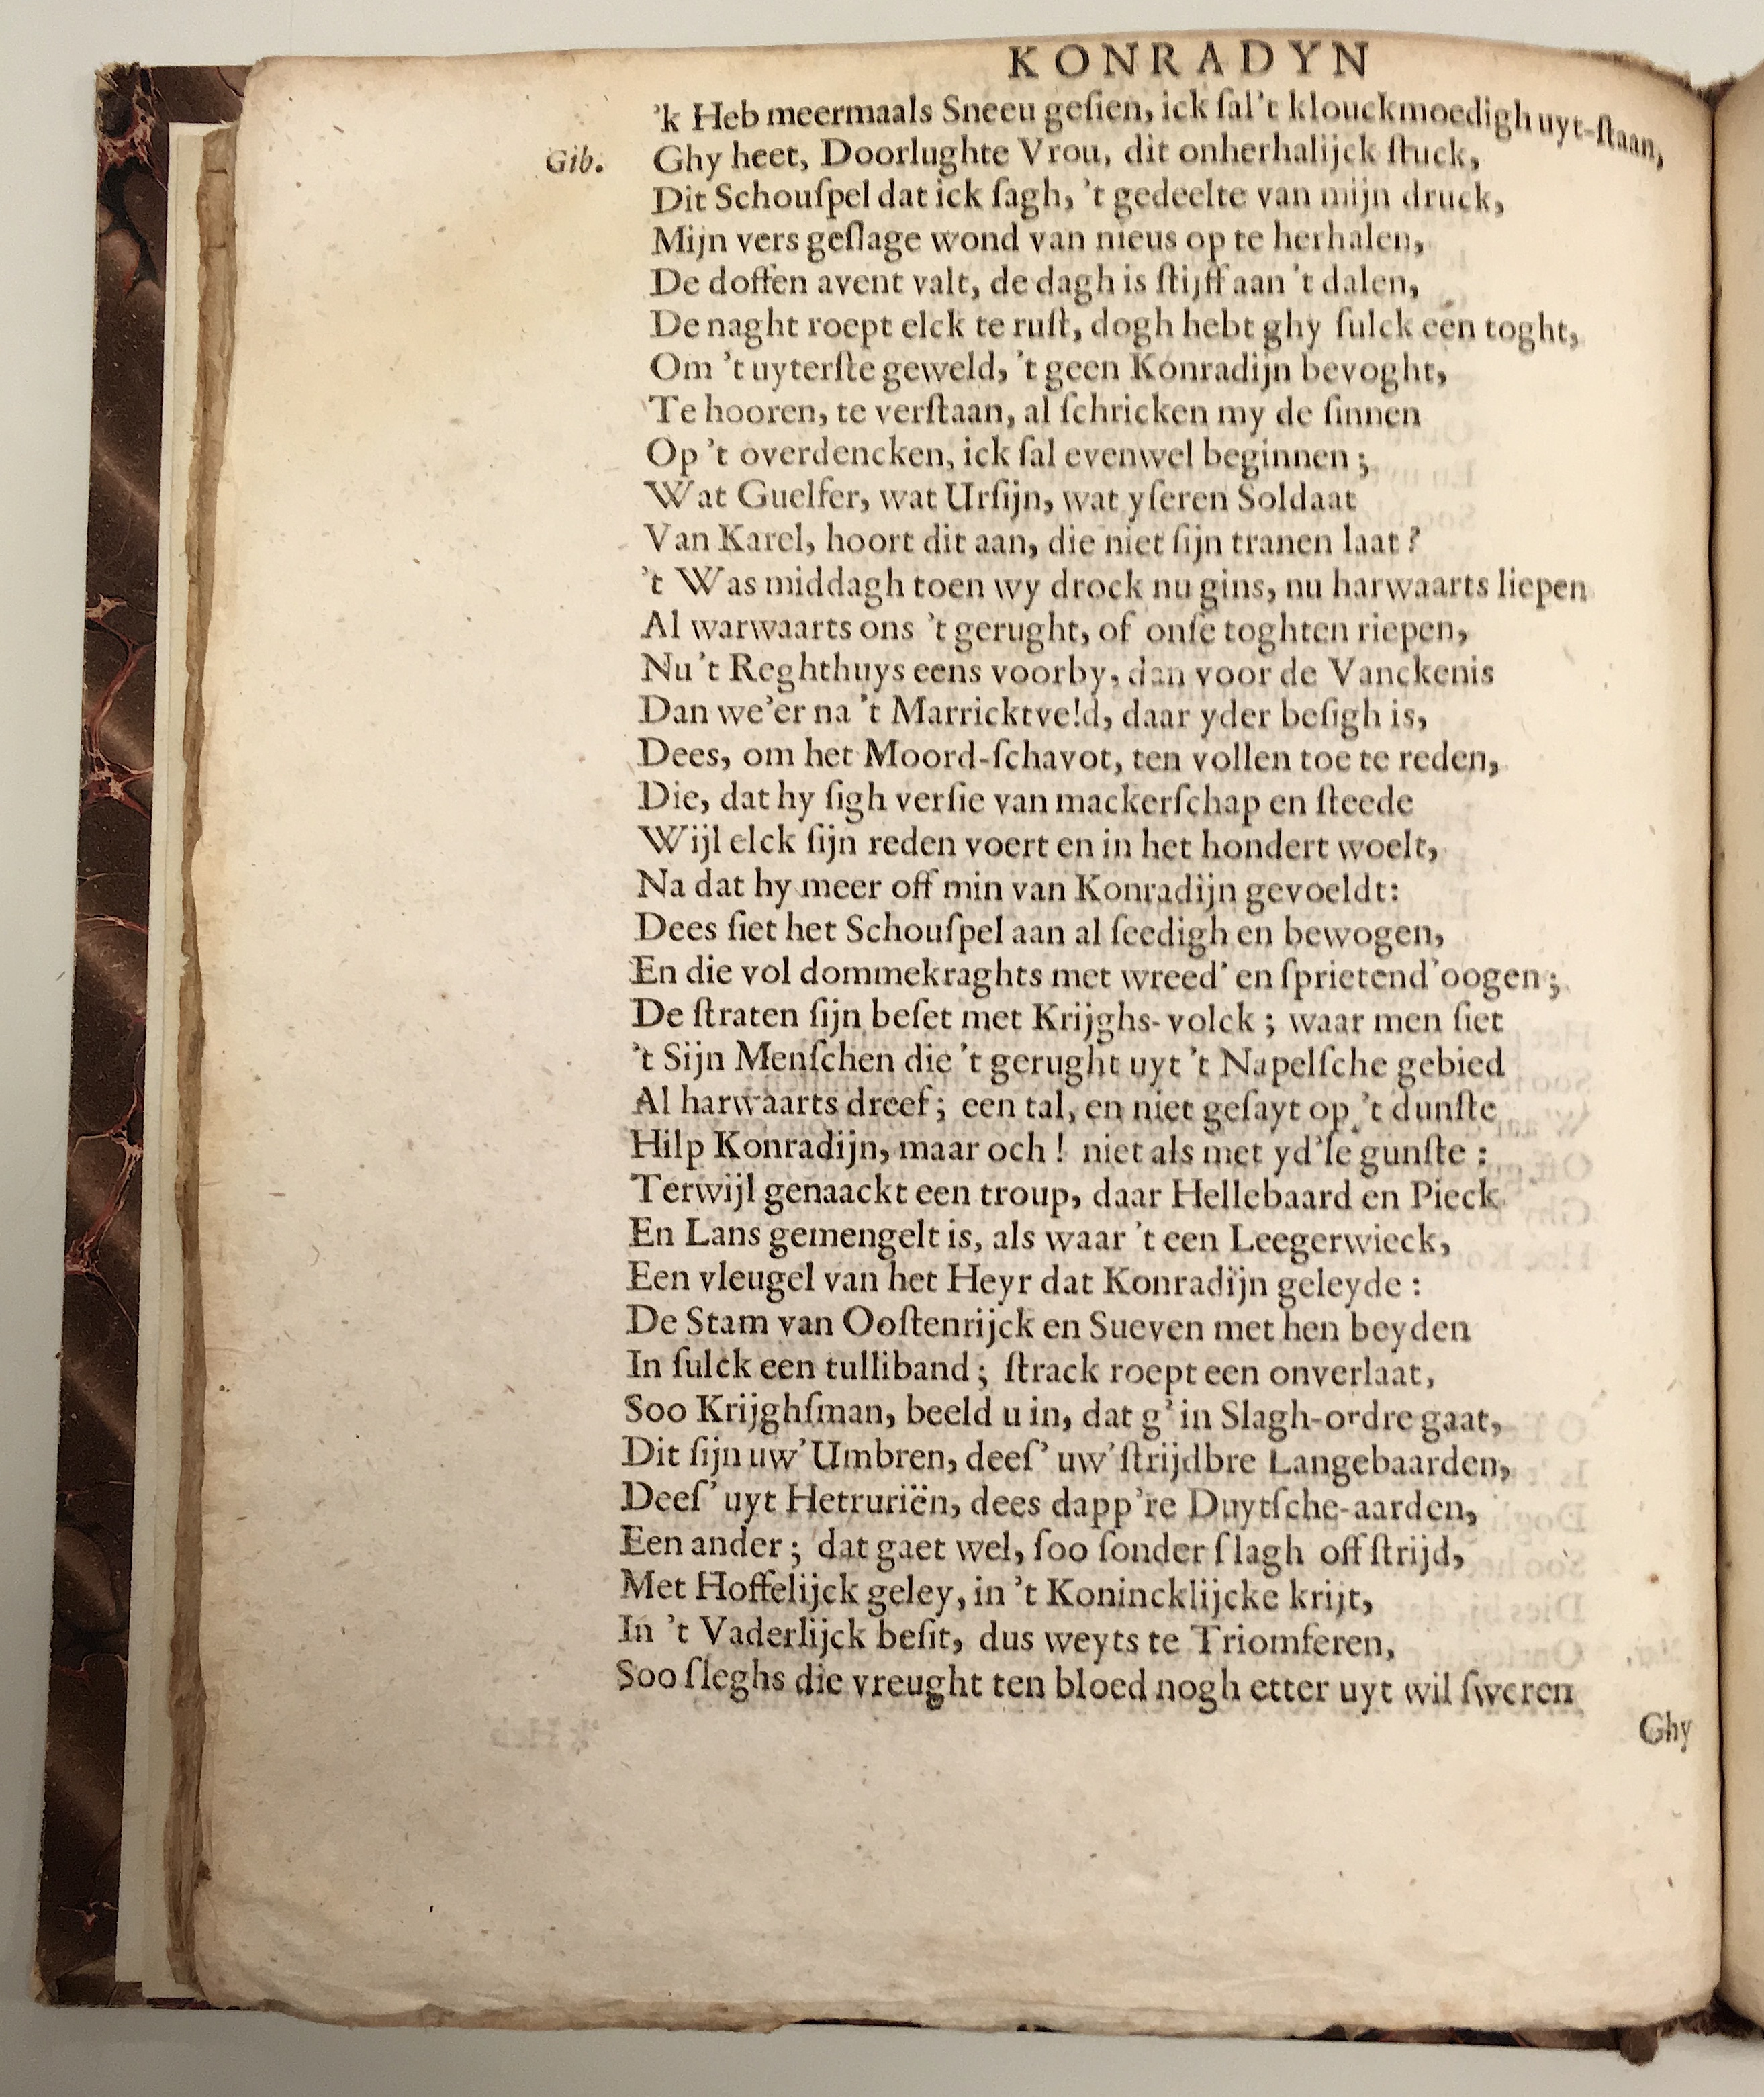 KONRADYN
'k Heb meermaals Sneeu geſien, ick ſal't klouckmoedigh uyt-ſtaan,
Gib. Ghy heet, Doorlughte Vrou, dit onherhalijck ſtuck,
Dit Schouſpel dat ick ſagh, 't gedeelte van mijn druck,
Mijn vers geſlage wond van nieus op te herhalen,
De doffen avent valt, de dagh is ſtijff aan 't dalen,
De naght roept elck te ruſt, dogh hebt ghy ſulck een toght,
Om 't uyterſte geweld, 't geen Konradijn bevoght,
Te hooren, te verſtaan, al ſchricken my de ſinnen
Op 't overdencken, ick ſal evenwel beginnen;
Wat Guelfer, wat Urſijn, wat yſeren Soldaat
Van Karel, hoort dit aan, die niet ſijn tranen laat?
't Was middagh toen wy drock nu gins, nu harwaarts liepen
Al warwaarts ons 't gerught, of onſe toghten riepen,
Nu 't Reghthuys eens voorby, dan voor de Vanckenis
Dan we'er na 't Marricktveld, daar yder beſigh is,
Dees, om het Moord-ſchavot, ten vollen toe te reden,
Die, dat hy ſigh verſie van mackerſchap en ſteede
Wijl elck ſijn reden voert en in het hondert woelt,
Na dat hy meer off min van Konradijn gevoeldt:
Dees ſiet het Schouſpel aan al ſeedigh en bewogen,
En die vol dommekraghts met wreed' en ſprietend'oogen;
De ſtraten ſijn beſet met Krijghs-volck; waar men ſiet
't Sijn Menſchen die 't gerught uyt 't Napelſche gebied
Al harwaarts dreef; een tal, en niet geſayt op 't dunſte
Hilp Konradijn, maar och! niet als met yd'le gunſte:
Terwijl genaackt een troup, daar Hellebaard en Pieck
En Lans gemengelt is, als waar 't een Leegerwieck,
Een vleugel van het Heyr dat Konradijn geleyde:
De Stam van Ooſtenrijck en Sueven met hen beyden
In ſulck een tulliband; ſtrack roept een onverlaat,
Soo Krijghſman, beeld u in, dat g' in Slagh-ordre gaat,
Dit ſijn uw' Umbren, deeſ' uw' ſtrijdbre Langebaarden,
Deeſ' uyt Hetruriën, dees dapp're Duytſche-aarden,
Een ander; dat gaet wel, ſoo ſonder ſlagh off ſtrijd,
Met Hoffelijck geley, in 't Konincklijcke krijt,
In 't Vaderlijck beſit, dus weyts te Triomferen,
Soo ſleghs die vreught ten bloed nogh etter uyt wil ſweren
Ghy